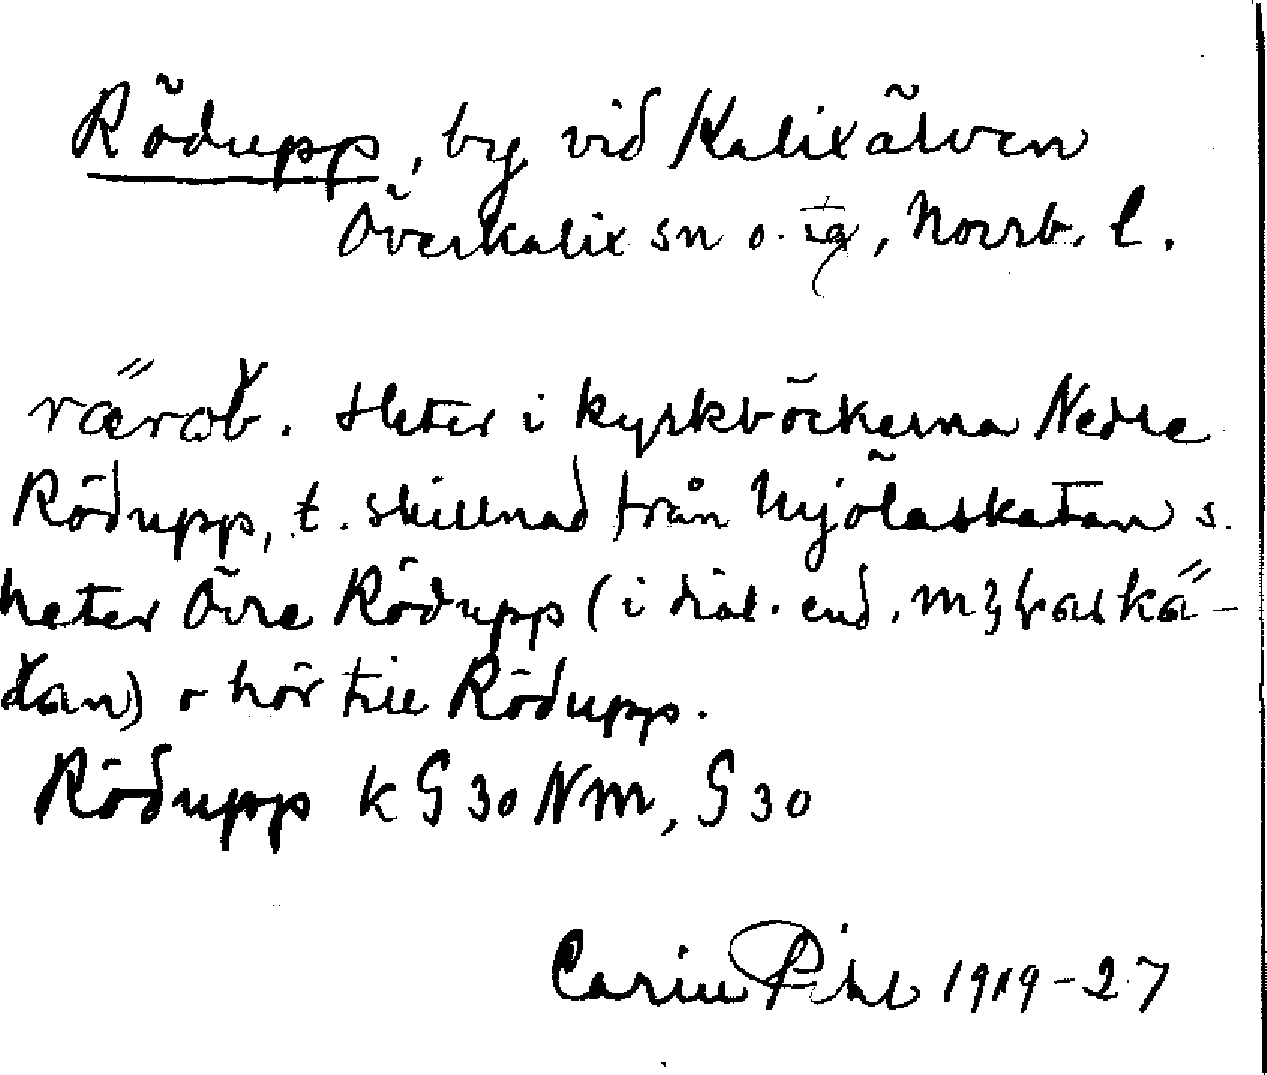 Rödupp, by vid Kalixälven
Överkalix sn o. tg, Norrb. l.
Heter i kyrkböckerna Nedre
Rödupp, t. skillnad från Mjölaskatan s.
heter Övre Rödupp (i dial. end.
dan) o hör till Rödupp.
Rödupp k G 30 Nm, G 30
Carin Pihl 1919-27